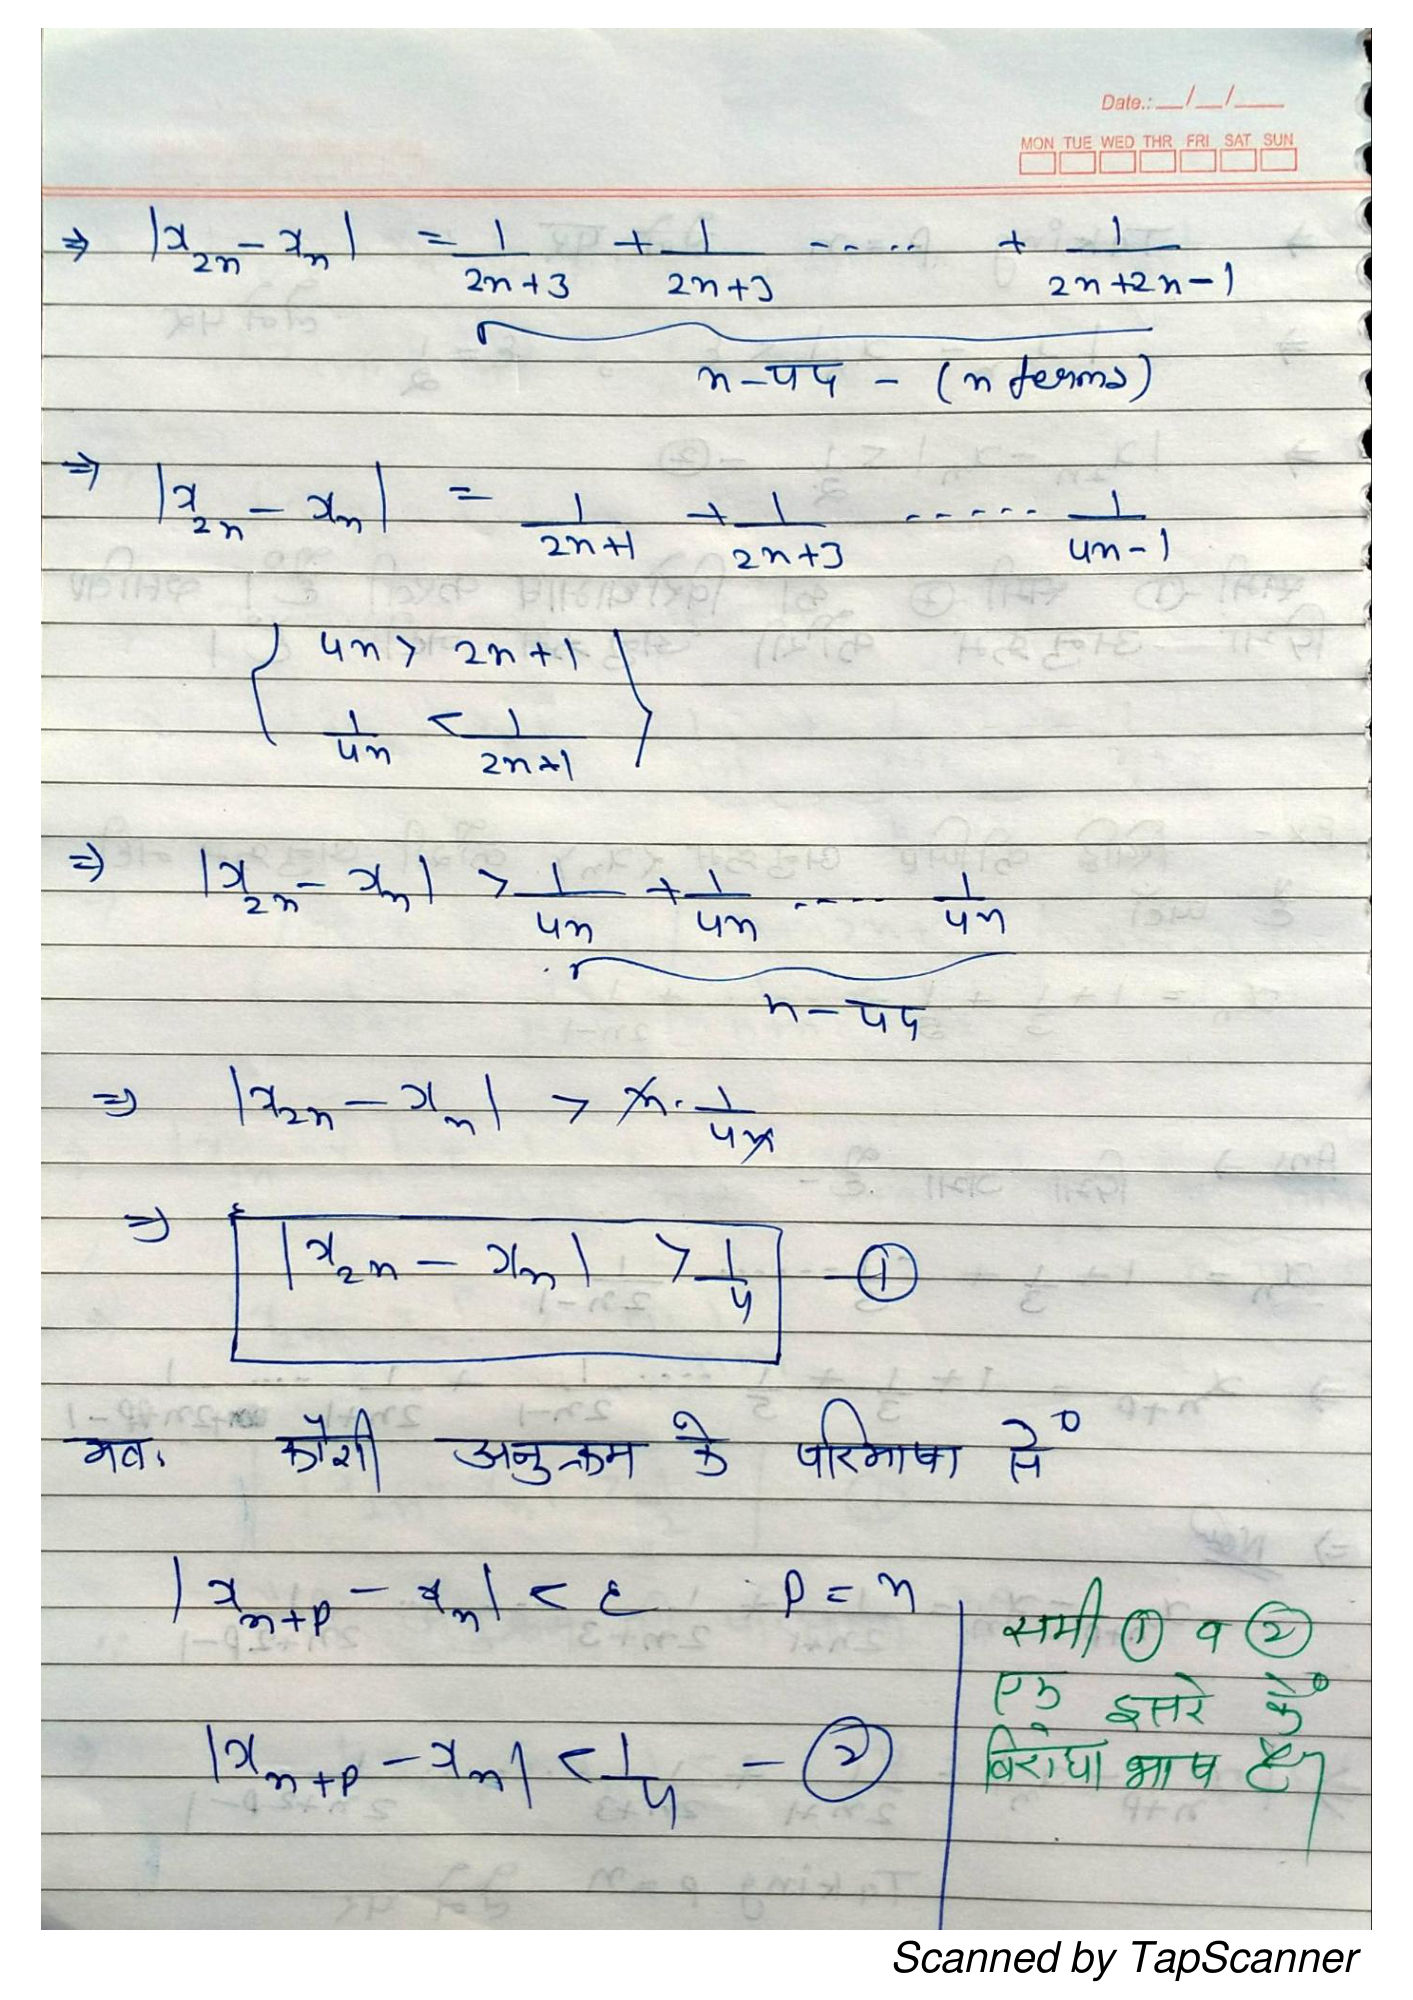 Date.: __/__/__
MON TUE WED THR FRI SAT SUN
⇒ |x_{2n} - x_n| = 1/(2n+3) + 1/(2n+3) ----- + 1/(2n+2n-1)
n-पद - (n terms)
⇒ |x_{2n} - x_n| = 1/(2n+1) + 1/(2n+3) ------ 1/(4n-1)
{ 4n > 2n+1 }
{ 1/4n < 1/(2n+1) }
⇒ |x_{2n} - x_n| > 1/4n + 1/4n ----- 1/4n
n-पद
⇒ |x_{2n} - x_n| > n · 1/4n
⇒ |x_{2n} - x_n| > 1/4 — ①
कॉशी अनुक्रम के परिभाषा से
|x_{n+p} - x_n| < ε p = n
|x_{n+p} - x_n| < 1/4 - ②
समी ① व ②
एक दुसरे के
विरोधा भाष है
Scanned by TapScanner